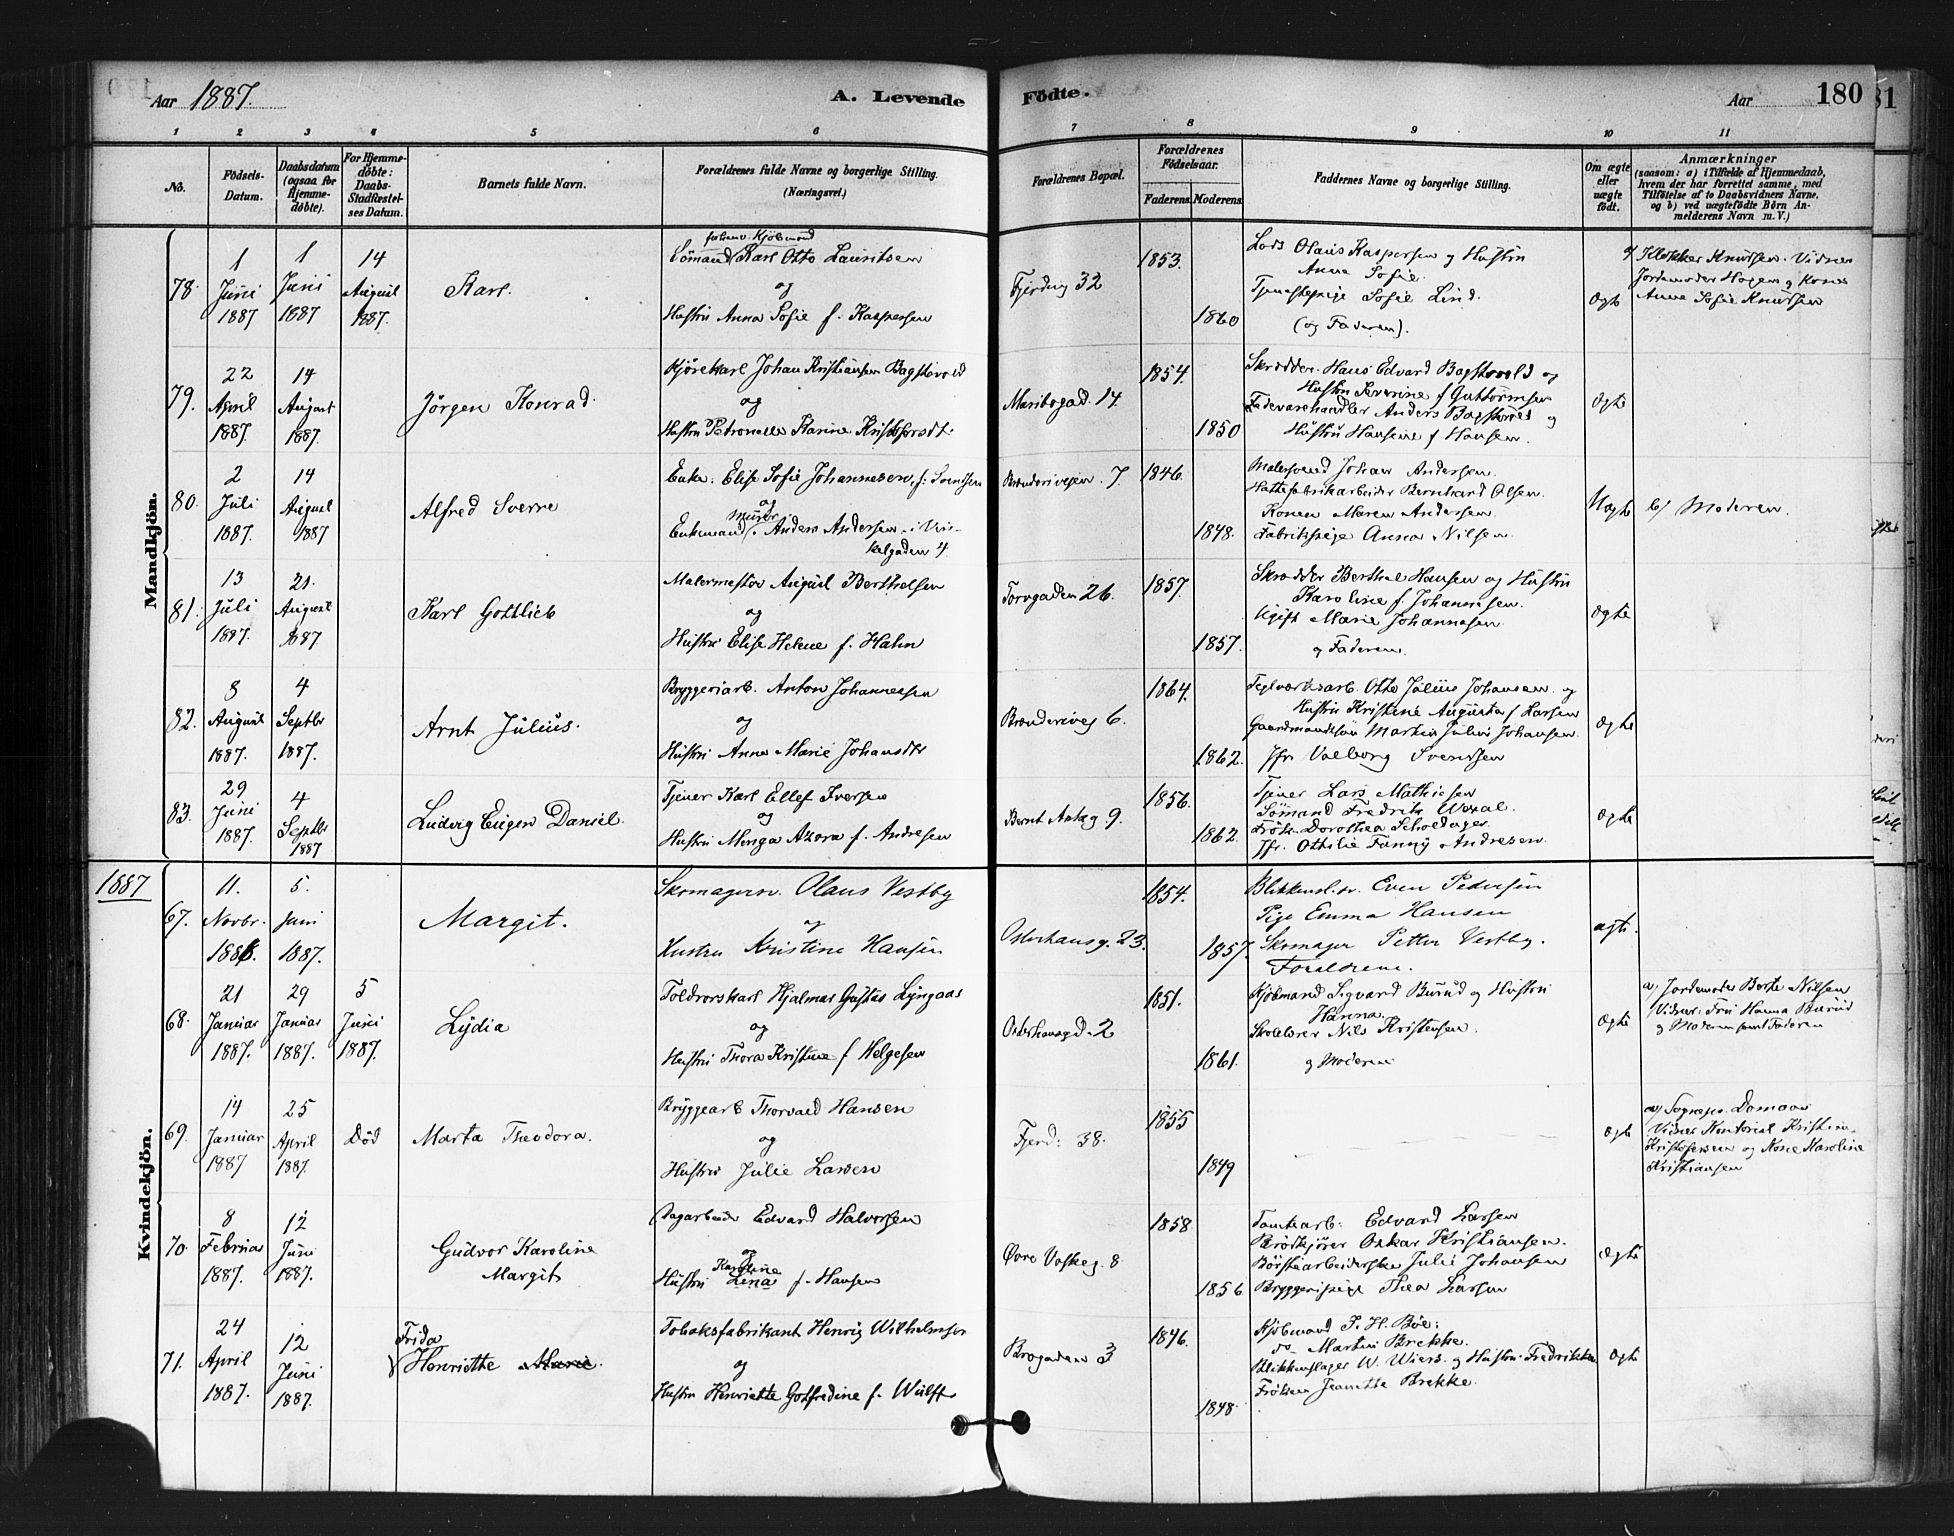 Aar 1887.
A. Levende
Fødte.
Aar
180
81
1 2 3 4 5 6 7 8 9 10 11
No.
Fødsels-
Datum.
Daabsdatum
(ogsaa for
Hjemme-
døbte).
For Hjemme-
døbte:
Daabs-
Stadfæstel-
ses Datum.
Barnets fulde Navn.
Forældrenes fulde Navne og borgerlige Stilling.
(Næringsvei.)
Forældrenes Bopæl.
Forældrenes
Fødselsaar.
Faderens. Moderens.
Faddernes Navne og borgerlige Stilling.
Om ægte
eller
uægte
født.
Anmærkninger
(saasom: a) i Tilfælde af Hjemmedaab,
hvem der har forrettet samme, med
Tilføielse af to Daabsvidners Navne,
og b) ved uægtefødte Børn An-
melderens Navn m. V.)
Mandkjön.
78.
1
Juni
1887
1
Juni
1887
14
August
1887.
Karl.
Sömand Karl Otto Lauritsen
og
Hustru Anna Sofie f. Kaspersen
Fjerding 32
1853.
1860
Lods Olaus Kaspersen og Hustru
Anne Sofie.
Tjenestepige Sofie Lind.
(og Faderen).
Ægte
a/ Klokker Knudsen. Vidner
Jordemoder Hagen og Kone
Anne Sofie Knudsen
79.
22
April
1887.
14
August
1887.
Jörgen Konrad.
Kjörekarl Johan Kristiansen Bagstevold
og
Hustru Petronelle Karine Kristofersdtr.
Maribogad. 14.
1854.
1850
Skrædder Hans Edvard Bagstevold og
Hustru Severine f. Guttormsen
Fedevarehandler Anders Bagstevold og
Hustru Hansine f Hansen.
Ægte
80.
2
Juli
1887.
14
August
1887
Alfred Sverre
Enke: Elise Sofie Johannesen, f. Svendsen
og
Murer
Enkemand Anders Andersen i Vin-
kelgaden 4
Brænderiveien. 7.
1846.
1848.
Malersvend Johan Andersen.
Hattefabrikarbeider Bernhard Olsen.
Konen Maren Andersen.
Fabrikspige Anna Nilsen.
Uægte
b/ Moderen.
81.
13
Juli
1887.
21.
August
1887
Karl Gottlieb
Malermester August Berthelsen
og
Hustru Elise Helene f. Hahn
Torvgaden 26.
1857.
1857.
Skrædder Berthel Hansen og Hustru
Karoline f. Johannesen.
Ugift Marie Johannesen.
og Faderen.
Ægte
82.
8
August
1887.
4
Septbr
1887.
Arnt Julius.
Bryggeriarb. Anton Johannessen
og
Hustru Anne Marie Johansdtr
Brænderivg 6.
1864.
1862.
Teglværksarb. Otto Julius Johansen og
Hustru Kristine Augusta f Larsen
Gaardmandssön Martin Julius Johansen
Jfr Valborg Svendsen
Ægte
83.
29
Juni
1887.
4
Septbr
1887
Ludvig Eugen Daniel.
Tjener Karl Ellef Iversen
og
Hustru Menga Azora f. Andresen
Bernt Ankg. 9.
1856.
1862.
Tjener Lars Mathiesen
Sömand Fredrik Woxal.
Frök. Dorothea Scholdager
Jfr. Ottilie Fanny Andresen.
Ægte
Kvindekjön.
1887
67.
11.
Novbr.
1886.
5.
Juni
1887.
Margit.
Skomagersv. Olaus Vestby
og
Hustru Kristine Hansen
Osterhausg. 23.
1854.
1857.
Blikkensl.sv. Even Pedersen
Pige Emma Hansen
Skomager Petter Vestby.
Forældrene.
ægte.
68.
21
Januar
1887.
29
Januar
1887.
5
Juni
1887.
Lydia
Toldrorskarl Hjalmar Gustav Lyngaas
og
Hustru Thora Kristine f Helgesen
Osterhausgd. 2
1851.
1861.
Kjöbmand Sigvard Burud og Hustru
Hanna.
Skolelærer Nils Kristensen.
og Moderen
Ægte
a/ Jordemoder Berte Nilsen
Vidner: Fru Hanna Burud
og Moderen samt Faderen
69.
14
Januar
1887
25
April
1887.
Död
Marta Theodora.
Bryggearb Thorvald Hansen
og
Hustru Julie Larsen
Fjerd: 38.
1855
1849
Ægte
a/ Sognepr. Domaas
Vidner Kontorist Kristian
Kristofersen og Kone Karoline
Kristiansen
70.
8
Februar
1887.
12
Juni
1887.
Gudvor Karoline
Margit
Dagarbeider Edvard Halvorsen
og
Karoline
Hustru Lina f. Hansen
Øvre Vaskeg. 8
1858
1856
Tomtearb. Edvard Larsen
Brödkjörer Oskar Kristiansen.
Börstearbeiderske Julie Johansen
Bryggeripige Thea Larsen
Ægte
71.
24
April
1887.
12
Juni
1887.
Frida
Henriette Marie.
Tobaksfabrikant Henrig Wilhelmsen
og
Hustru Henriette Gotfredine f. Wulff
Brogaden 3
1846.
1848
Kjöbmand P. H. Böe:
do Martin Brekke.
Blikkenslager W. Wiers. og Hustru Fredrikke
Fröken Jeanette Brekke.
Ægte